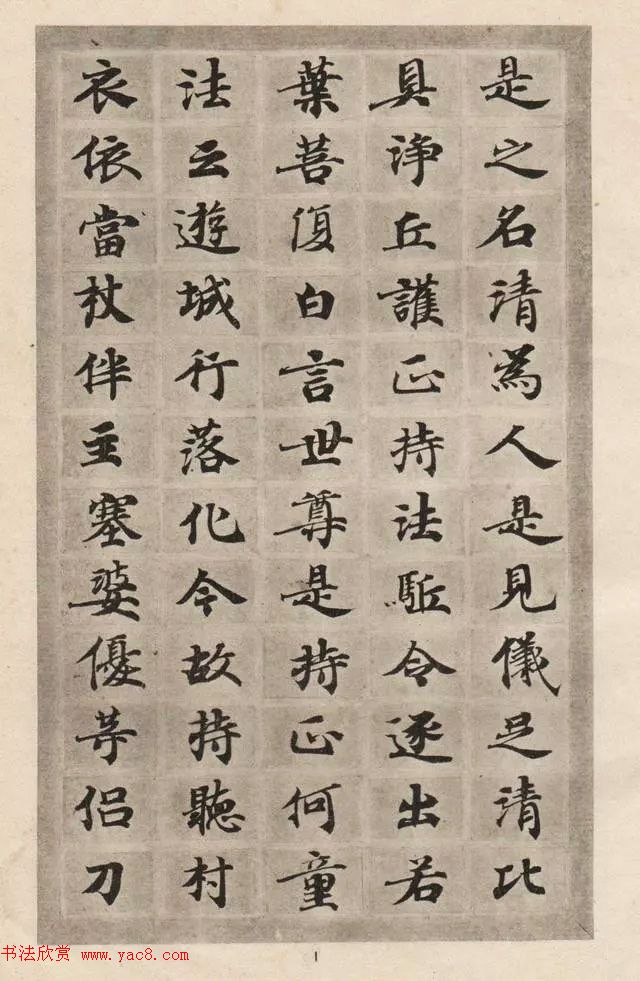 是之名清為人是見儀足清比
具淨丘護正持法駈令逐出若
葉菩復白言世尊是持正何童
法云遊城行落化今故持聽村
衣依當杖伴主塞婆優等侣刀
书法欣赏 www.yac8.com
1